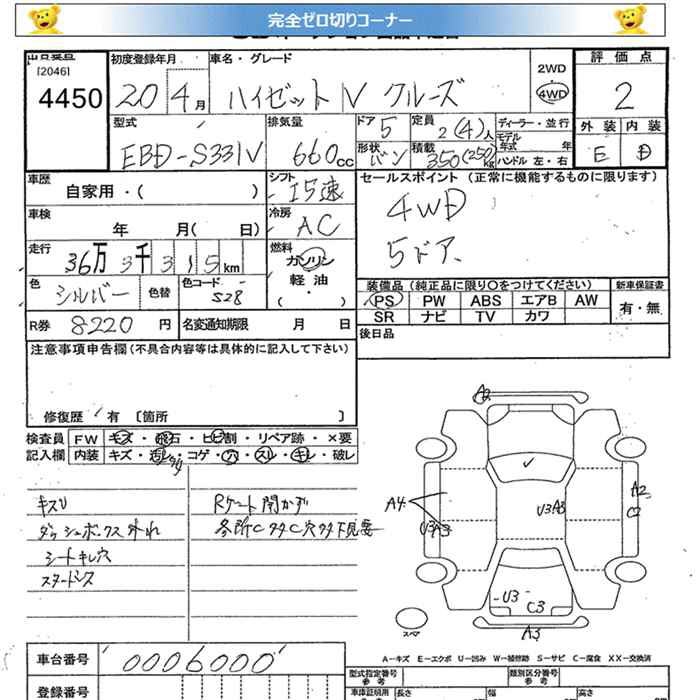 完全ゼロ切りコーナー
[2046]
4450
初度登録年月
20 4月
車名・グレード
ハイゼット V クルーズ
2WD
・
4WD
評価点
2
外装 内装
E D
型式
EBD-S331V
排気量
660cc
ドア
5
形状
バン
定員
2(4)人
積載
350(250)kg
ディーラー・並行
モデル年式 年
ハンドル 左・右
車歴
自家用・( )
車検
年 月( 日)
走行
36万3千315km
色
シルバー
色替
色コード
S28
R券 8220 円
名変通知期限 月 日
シフト
I5速
冷房
AC
燃料
ガソリン
・
軽油
( ・ )
セールスポイント (正常に機能するものに限ります)
4WD
5ドア
装備品 (純正品に限り○をつけてください)
PS PW ABS エアB AW
SR ナビ TV カワ
新車保証書
有・無
後日品
注意事項申告欄(不具合内容等は具体的に記入して下さい)
修復歴 有 〔箇所 〕
検査員記入欄
FW キズ・飛石・ヒビ割・リペア跡・×要
内装 キズ・汚レ・コゲ・穴・スレ・キレ・破レ
キスリ
ダッシュボックス外れ
シートキレ穴
Rゲート開かず
各所Cサビ穴サビ下見要
A2
A4
U3A3
U3A3
A2
C2
U3
C3
A3
スペア
A-キズ E-エクボ U-凹み W-補修跡 S-サビ C-腐食 XX-交換済
車台番号 0006000
登録番号
型式指定番号
参考
類別区分番号
参考
車庫証明用
長さ
幅
高さ